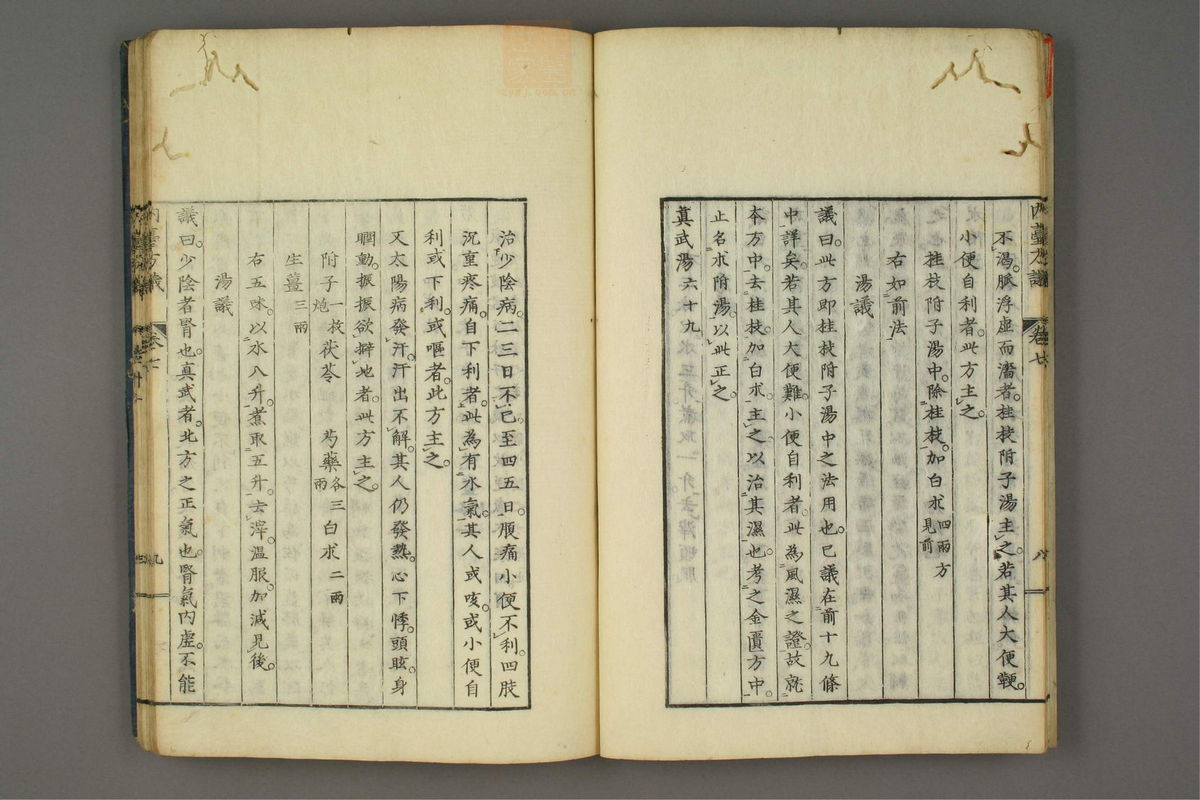 內臺方議 卷七 八
不渴。脈浮虛而濇者。桂枝附子湯主之。若其人大便鞕。
小便自利者。此方主之。
桂枝附子湯中。除桂枝。加白朮四兩方見前
右如前法
湯議
議曰。此方即桂枝附子湯中之法用也。已議在前十九條
中詳矣。若其人大便難。小便自利者。此為風濕之證。故就
本方中。去桂枝加白朮。主之以治其濕也。考之金匱方中。
止名朮附湯。以此正之。
真武湯六十九
治少陰病。二三日不已。至四五日。腹痛小便不利。四肢
沉重疼痛。自下利者。此為有水氣。其人或咳。或小便自
利或下利。或嘔者。此方主之。
又太陽病發汗。汗出不解。其人仍發熱。心下悸。頭眩。身
瞤動。振振欲擗地者。此方主之。
附子一枚炮 茯苓 芍藥各三兩 白朮二兩
生薑三兩
右五味。以水八升。煮取五升。去滓。溫服。加減見後。
湯議
議曰。少陰者腎也。真武者。北方之正氣也。腎氣內虛。不能
內臺方議 卷七 九